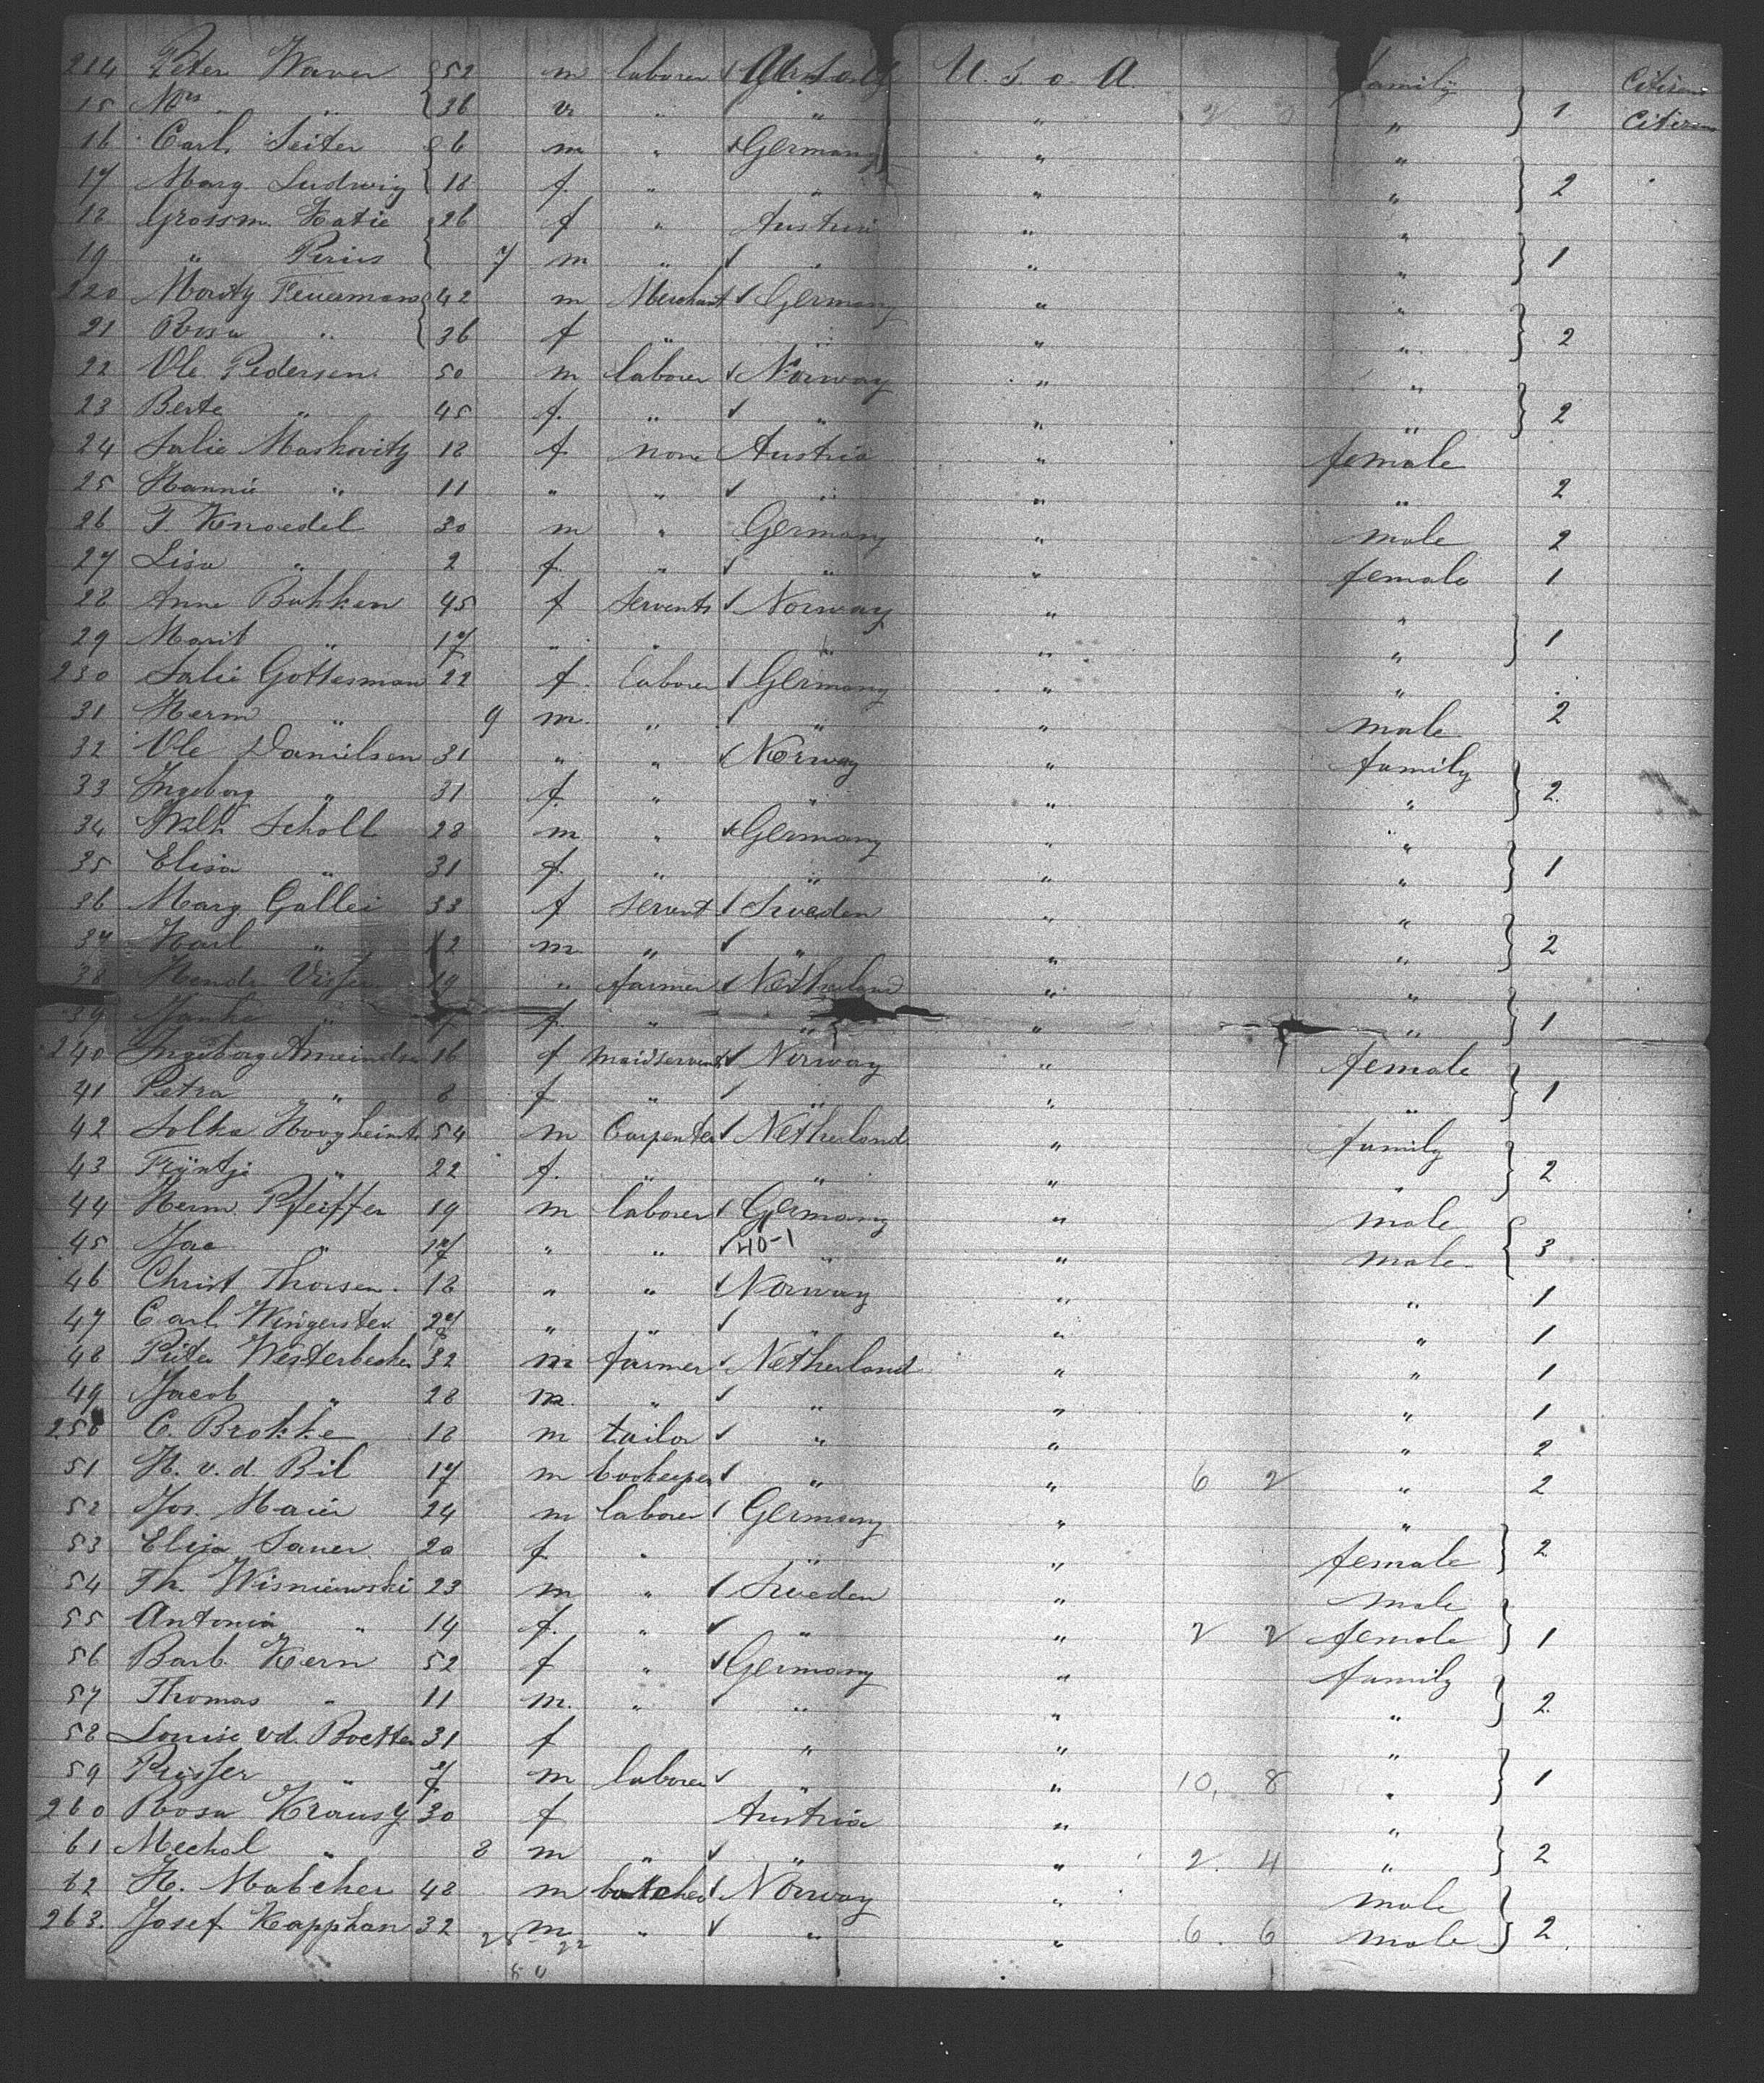 214 Peter Waver 52 m laborer U. S. o. A. family Citizen
15 Mrs " 36 " " " " 1 Citizen
16 Carl Seiter 6 m " Germany " "
17 Marg. Ludwig 18 f. " " " " 2
18 Grossm. Katie 26 f " Austria " "
19 " 7 m " " " " 1
220 Moritz Feuermann 42 m Merchant Germany " "
21 Rosa " 36 f " " " " 2
22 Ole Pedersen 50 m laborer Norway " "
23 Berte " 45 f. " " " " 2
24 Salie Moskovitz 18 f. none Austria " female
25 Hannie " 11 " " " " " 2
26 J. Knoedel 30 m " Germany " male 2
27 Lisa " 2 f. " " " female 1
28 Anne Bakken 45 f Servents Norway " "
29 Marit " 17 " " " " " 1
230 Salie Gottesman 22 f. laborer Germany " "
31 Herm " 9 m. " " " male 2
32 Ole Danielsen 31 " " Norway " family
33 Ingeborg " 31 f. " " " " 2
34 Wilh Scholl 28 m " Germany " "
35 Elisa " 31 f. " " " " 1
36 Marg Gallei 33 f Servent Sweden " "
37 Karl " 12 m. " " " " 2
38 Hendr Visser 19 " farmer Netherland " "
39 Janke " f. " " " " 1
240 Ingeborg 16 f maidservent Norway " female
41 Petra " 8 f. " " " " 1
42 54 m Carpenter Netherland " family
43 Trijntje " 22 f. " " " " 2
44 Herm. Pfeiffer 19 m laborer Germany " male
45 Jac " 17 " " 40-1 " " male 3
46 Christ Thorsen 18 " " Norway " " 1
47 Carl Wingerster 27 " " " " " 1
48 Pieter Westerbeeker 32 m farmer Netherland " " 1
49 Jacob " 28 m. " " " " 1
250 C. Brokke 18 m tailor " " " 2
51 H. v. d. Bil 17 m bookeeper " " 6 2 " 2
52 Jos. Maier 24 m laborer Germany " "
53 Elisa Sauer 20 f " " " female 2
54 Th. Wisniewski 23 m " Sweden " male
55 Antonia " 14 f. " " " 2 2 female 1
56 Barb. Kern 52 f " Germany " family
57 Thomas " 11 m. " " " " 2
58 Louise vd. Boetten 31 f " " "
59 " m laborer " " 10, 8 " 1
260 Rosa Krausz 30 f Austria " "
61 Mechel " 8 m " " " 2. 4 " 2
62 H. Matcher 48 m butcher Norway " male
263. Josef Kapphan 32 m " " " 6. 6 male 2